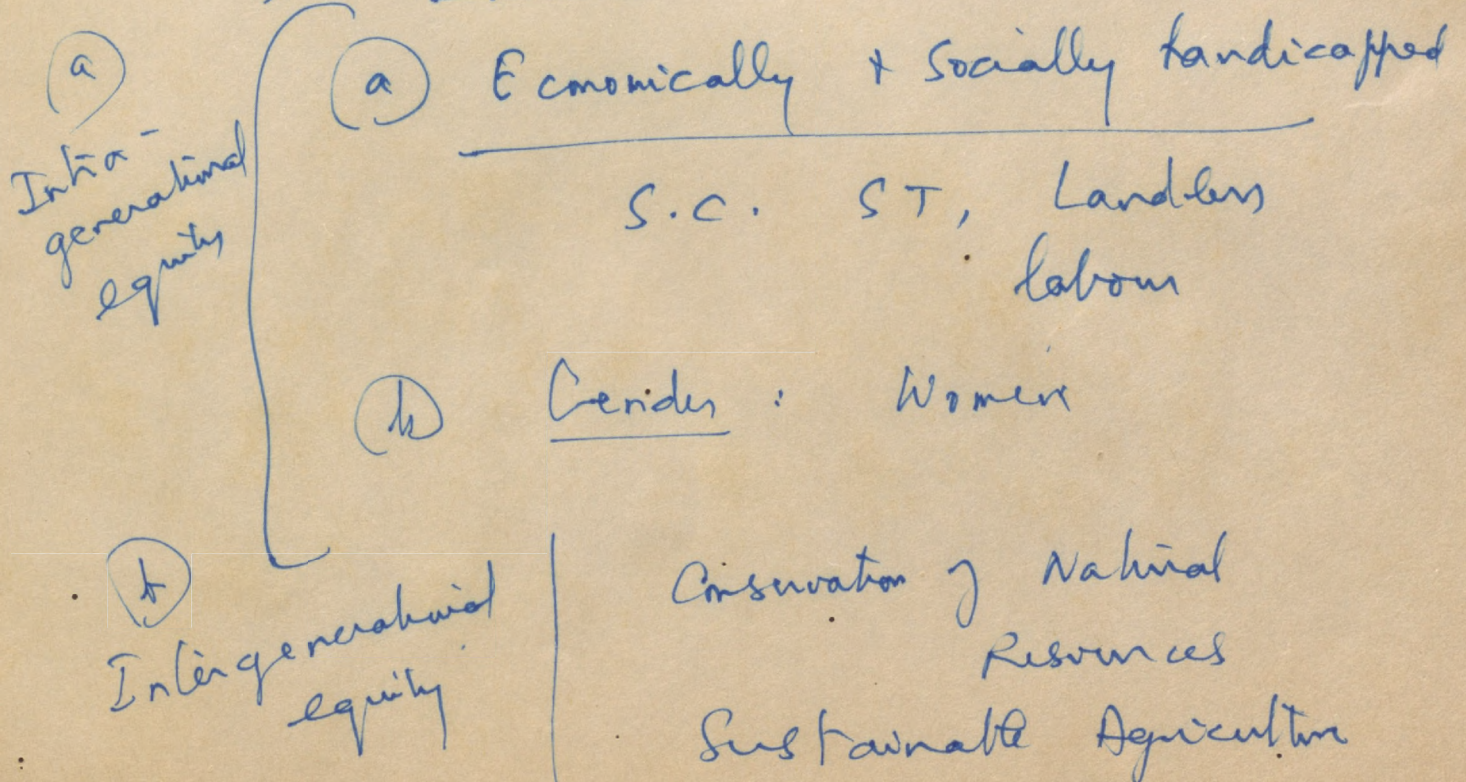 (a) Intra-
generational
equity
(a) Economically + Socially handicapped
S.C. ST, Landless
labour
(b) Gender : Women
(b)
Intergenerational
equity
Conservation of Natural
Resources
Sustainable Agriculture